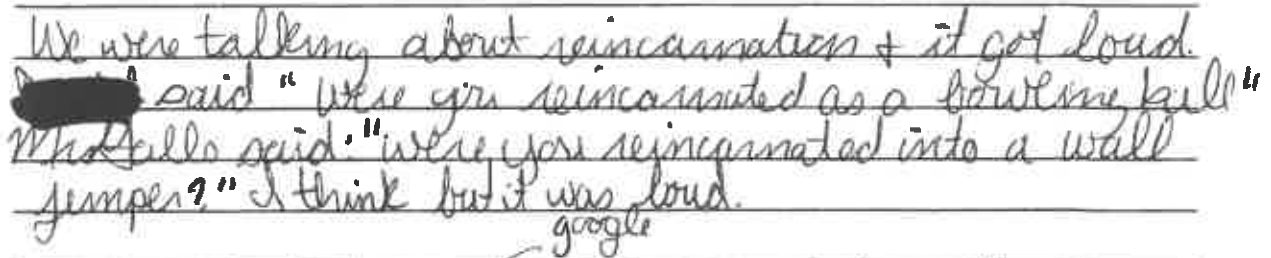 We were talking about reincarnation + it got loud.
said "were you reincarnated as a bowling ball"
said "were you reincarnated into a wall
jumper?" I think but it was loud.
google